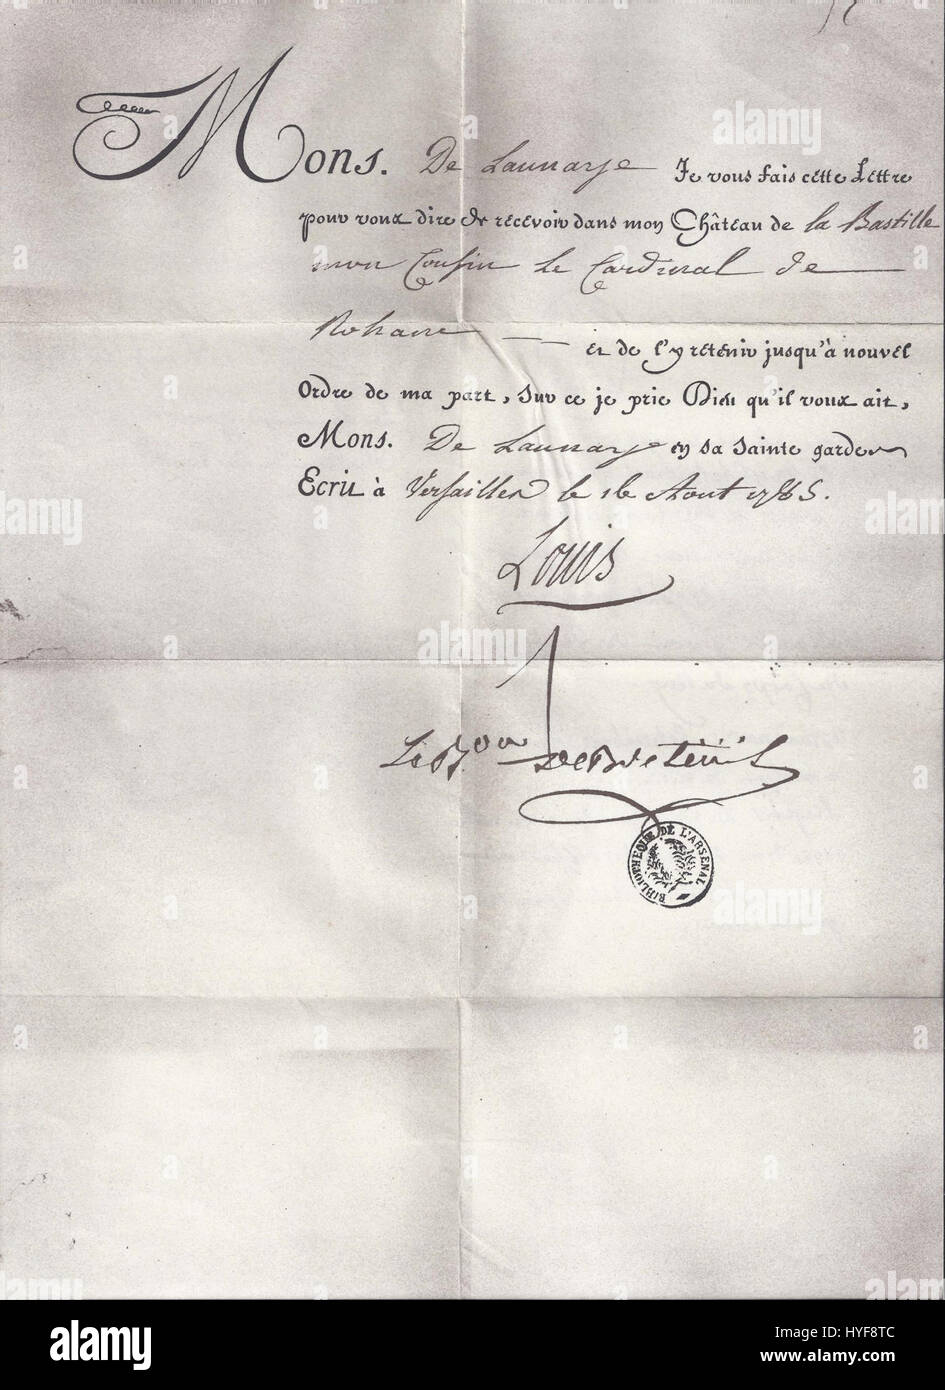 Mons. De Launaye Je vous fais cette Lettre
pour voux dire de recevoir dans mon Château de la Bastille
mon Cousin le Cardinal de
Rohane et de l'y retenir jusqu'à nouvel
Ordre de ma part, Sur ce je prie Dieu qu'il voux ait,
Mons. De Launaye en sa Sainte garde
Ecrit à Versailles le 16 Aout 1785.
Louis
Le Bon De Breteüil
BIBLIOTHEQUE DE L'ARSENAL
alamy
alamy stock photo
HYF8TC
www.alamy.com